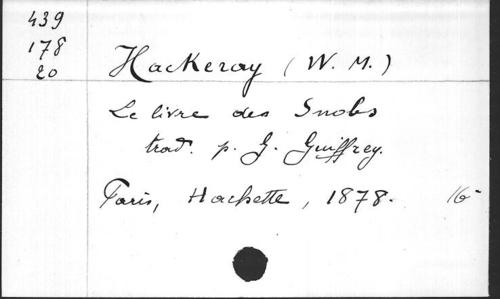 439
178
20
Hackeray (W. M.)
Le livre des Snobs
trad. p. G. Guiffrey.
Paris, Hachette, 1878. 16-